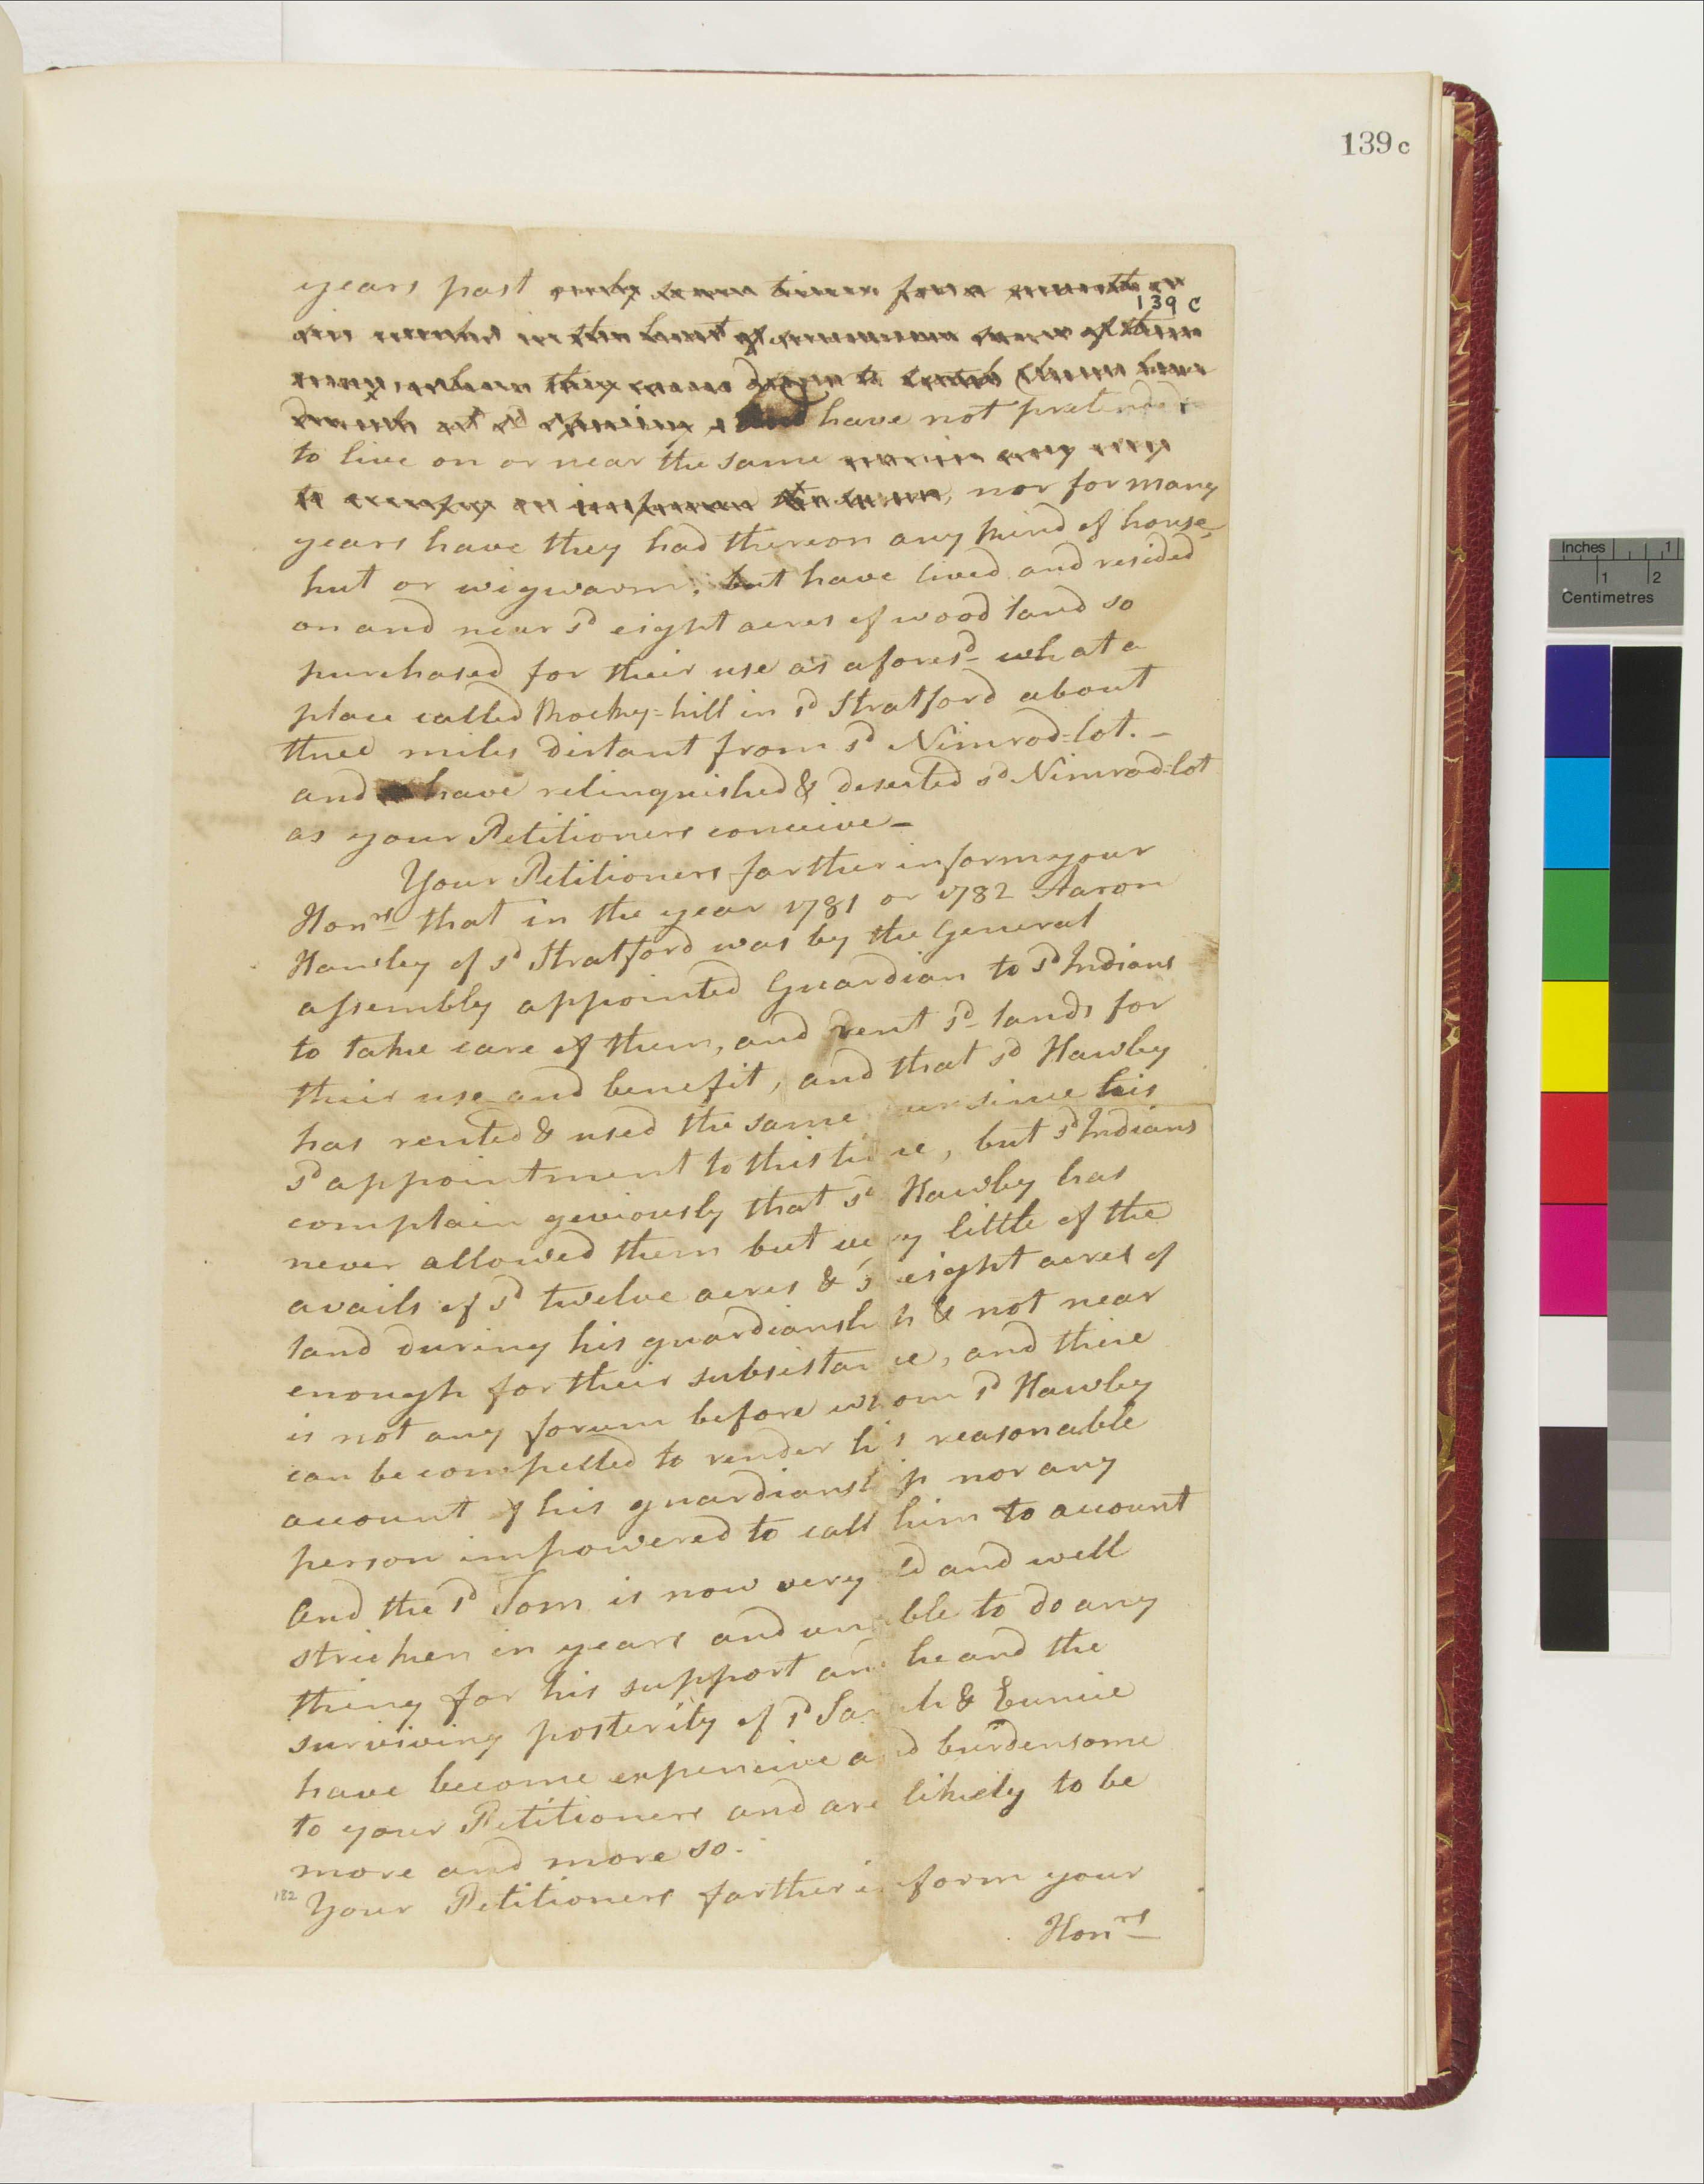 139 c
years past
139 c
have not pretended
to live on or near the same
nor for many
years have they had thereon any kind of house,
hut or wigwarm; but have lived and resided
on and near sd eight acres of wood land so
purchased for their use as aforesd - wh at a
place called Rocky-hill in sd Stratford about
three miles distant from sd Nimrod-lot. -
and have relinquished & deserted sd Nimrod-lot
as your Petitioners conceive -
Your Petitioners farther inform your
Honrs that in the year 1781 or 1782 Aaron
Hawley of sd Stratford was by the General
assembly appointed Guardian to sd Indians
to take care of them, and rent sd lands for
their use and benefit, and that sd Hawley
has rented & used the same ever since his
sd appointment to this time, but sd Indians
complain geviously that sd Hawley has
never allowed them but very little of the
avails of sd twelve acres & sd eight acres of
land during his guardianship & not near
enough for their subsistance, and there
is not any forum before whom sd Hawley
can be compelled to render his reasonable
account of his guardianship nor any
person impowered to call him to account
And the sd Tom is now very old and well
stricken in years and unable to do any
thing for his support and he and the
surviving posterity of sd Sarah & Eunice
have become expencive and burdensome
to your Petitioners and are likely to be
more and more so.
182 Your Petitioners farther inform your
Honrs
Inches 1
1 2
Centimetres